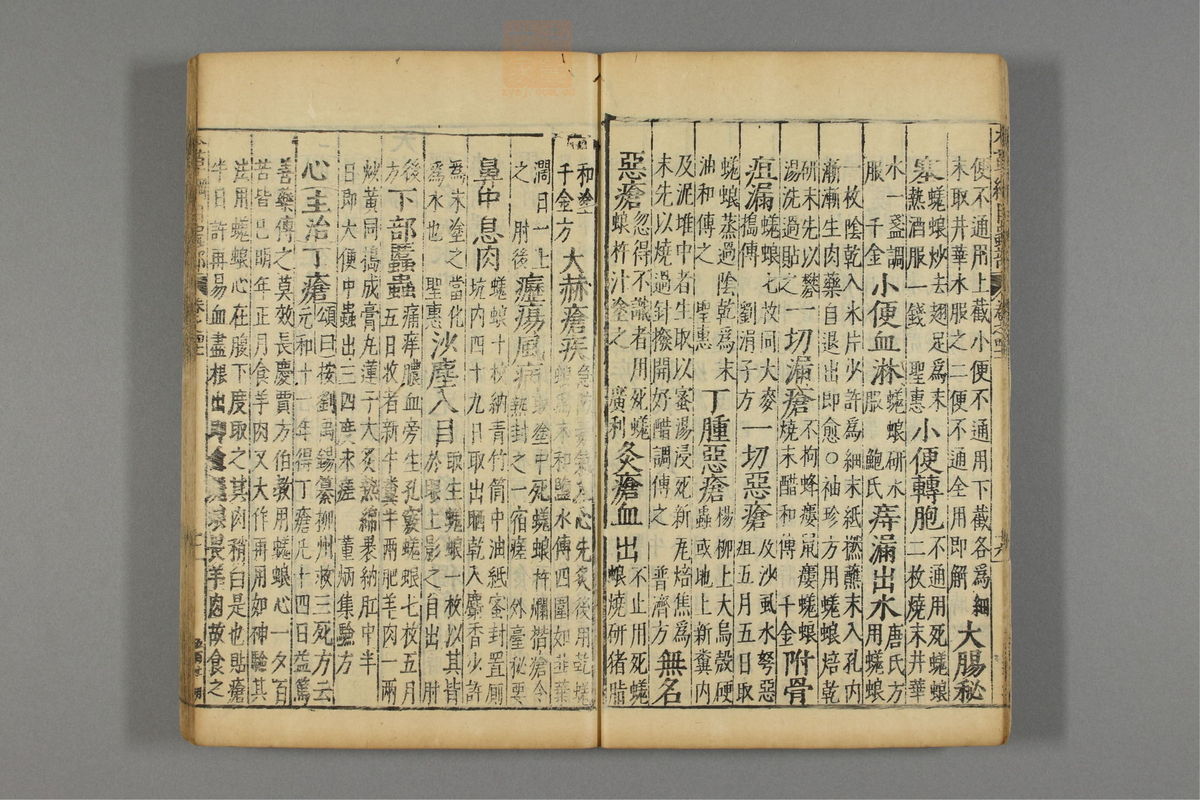 便不通用上截小便不通用下截各為細
末取井華水服之二便不通全用即解
大腸秘
塞
蜣螂炒去翅足為末
熱酒服一錢 聖惠
小便轉胞
不通用死蜣螂
二枚燒末井華
水一盞調
服 千金
小便血淋
蜣螂研水
服 鮑氏
痔漏出水
唐氏方
用蜣螂
一枚陰乾入氷片少許為細末紙撚蘸末入孔內
漸漸生肉藥自退出即愈○袖珍方用蜣螂焙乾
研末先以礬
湯洗過貼之
一切漏瘡
不拘蜂瘻鼠瘻蜣螂
燒末醋和傅 千金
附骨
疽漏
蜣螂七枚同大麥
搗傅 劉涓子方
一切惡瘡
及沙虱水弩惡
疽五月五日取
蜣螂蒸過陰乾為末
油和傅之 聖惠
丁腫惡瘡
楊柳上大烏殼硬
蟲或地上新糞內
及泥堆中者生取以蜜湯浸死新瓦焙焦為
末先以燒過針撥開好醋調傅之 普濟方
無名
惡瘡
忽得不識者用死蜣
螂杵汁塗之 廣利
灸瘡血出
不止用死蜣
螂燒研猪脂
和塗
千金方
大赫瘡疾
急防毒氣入心先灸後用乾蜣
螂為末和鹽水傅四圍如韭葉
濶日一上
之 肘後
癧瘍風病
取塗中死蜣螂杵爛揩瘡令
熱封之一宿瘥 外臺秘要
鼻中息肉
蜣螂十枚納青竹筒中油紙密封置厠
坑內四十九日取出晒乾入麝香少許
為末塗之當化
為水也 聖惠
沙塵入目
取生蜣螂一枚以其背
於眼上影之自出 肘
後
方
下部䘌蟲
痛痒膿血旁生孔竅蜣螂七枚五月
五日收者新牛糞半兩肥羊肉一兩
炒黃同搗成膏丸蓮子大炙熱綿褁納肛中半
日即大便中蟲出三四度永瘥 董炳集驗方
心主治丁瘡
頌曰按劉禹錫纂柳州救三死方云
元和十一年得丁瘡凡十四日益篤
善藥傅之莫效長慶賈方伯教用蜣螂心一夕百
苦皆已明年正月食羊肉又大作再用如神驗其
法用蜣螂心在腹下度取之其肉稍白是也貼瘡
半日許再易血盡根出即愈蜣螂畏羊肉故食之